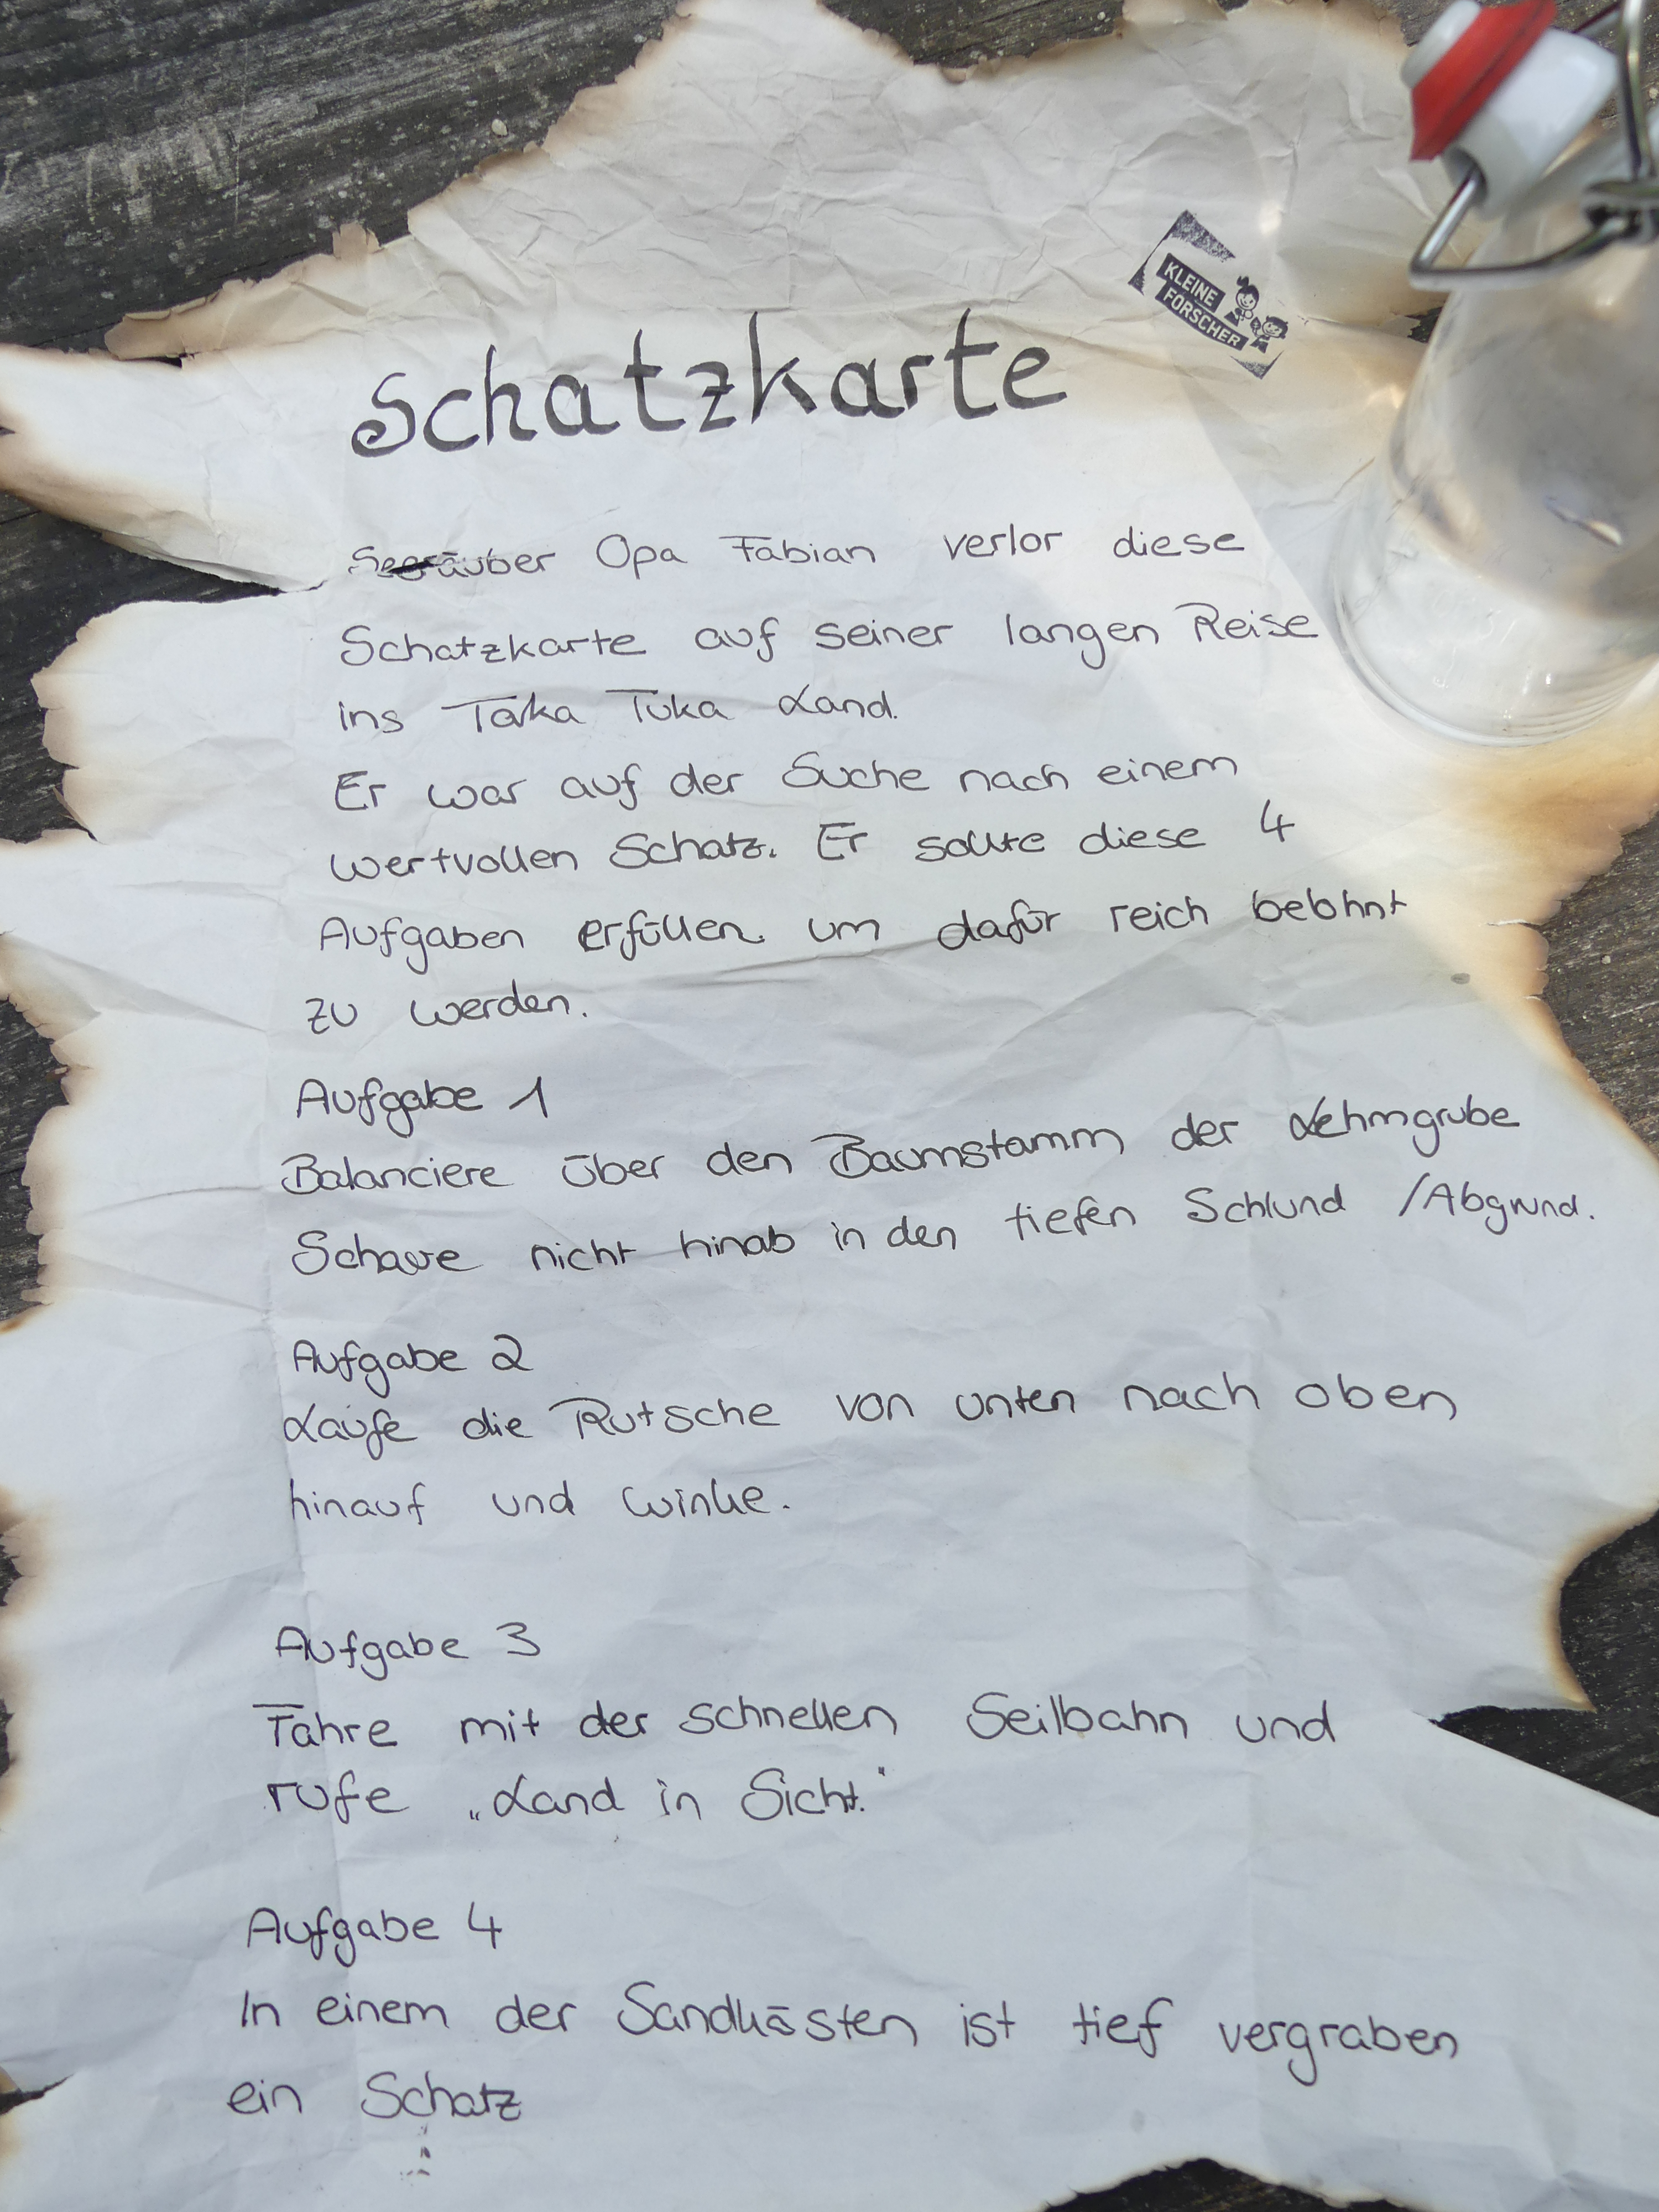 KLEINE
FORSCHER
Schatzkarte
Seeräuber Opa Fabian verlor diese
Schatzkarte auf seiner langen Reise
ins Taka Tuka Land.
Er war auf der Suche nach einem
wertvollen Schatz. Er sollte diese 4
Aufgaben erfüllen um dafür reich belohnt
zu werden.
Aufgabe 1
Balanciere über den Baumstamm der Lehmgrube
Schaue nicht hinab in den tiefen Schlund /Abgrund.
Aufgabe 2
Laufe die Rutsche von unten nach oben
hinauf und winke.
Aufgabe 3
Fahre mit der schnellen Seilbahn und
rufe „Land in Sicht."
Aufgabe 4
In einem der Sandkästen ist tief vergraben
ein Schatz